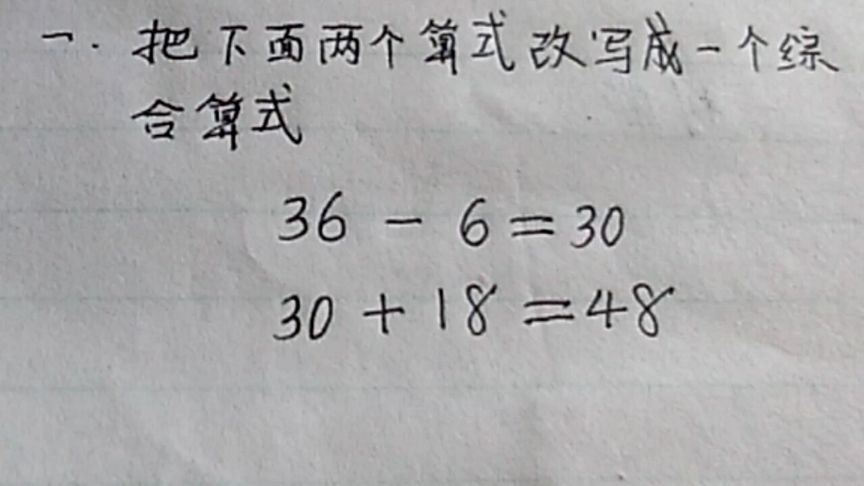 一. 把下面两个算式改写成一个综
合算式
36 - 6 = 30
30 + 18 = 48